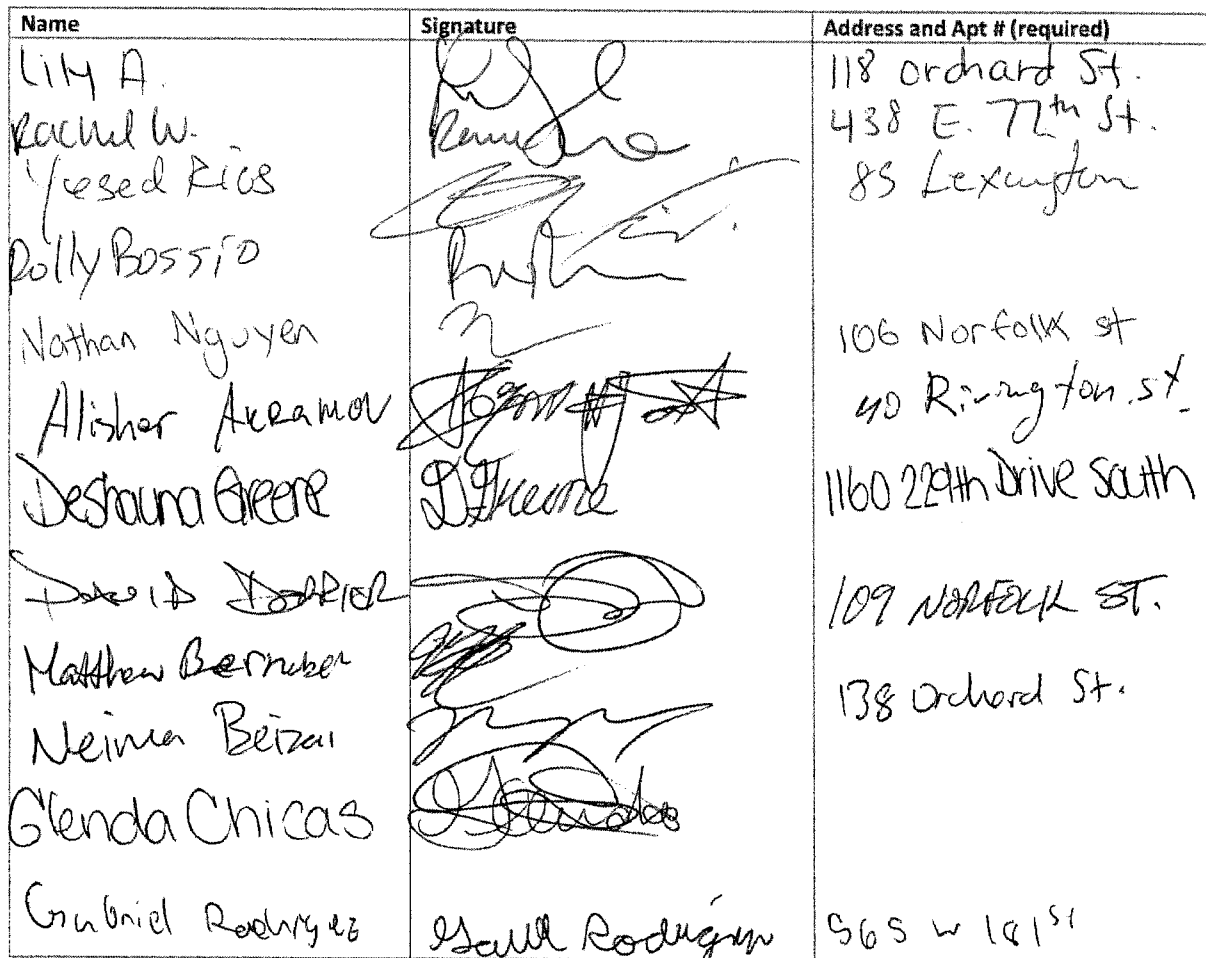 Name Signature Address and Apt # (required)
Lily A. 118 orchard St.
Rachel W. 438 E. 77th St.
Yesed Rios 85 Lexington
Rolly Bossio
Nathan Nguyen 106 Norfolk st
Alisher Akramov 40 Rivington st.
Deshauna Greene D Greene 1160 229th Drive South
David Dorrier 109 Norfolk St.
Matthew
138 Orchard St.
Neima Beizai
Glenda Chicas Glenda
Gabriel Rodriguez Rodriguez 565 w 181st